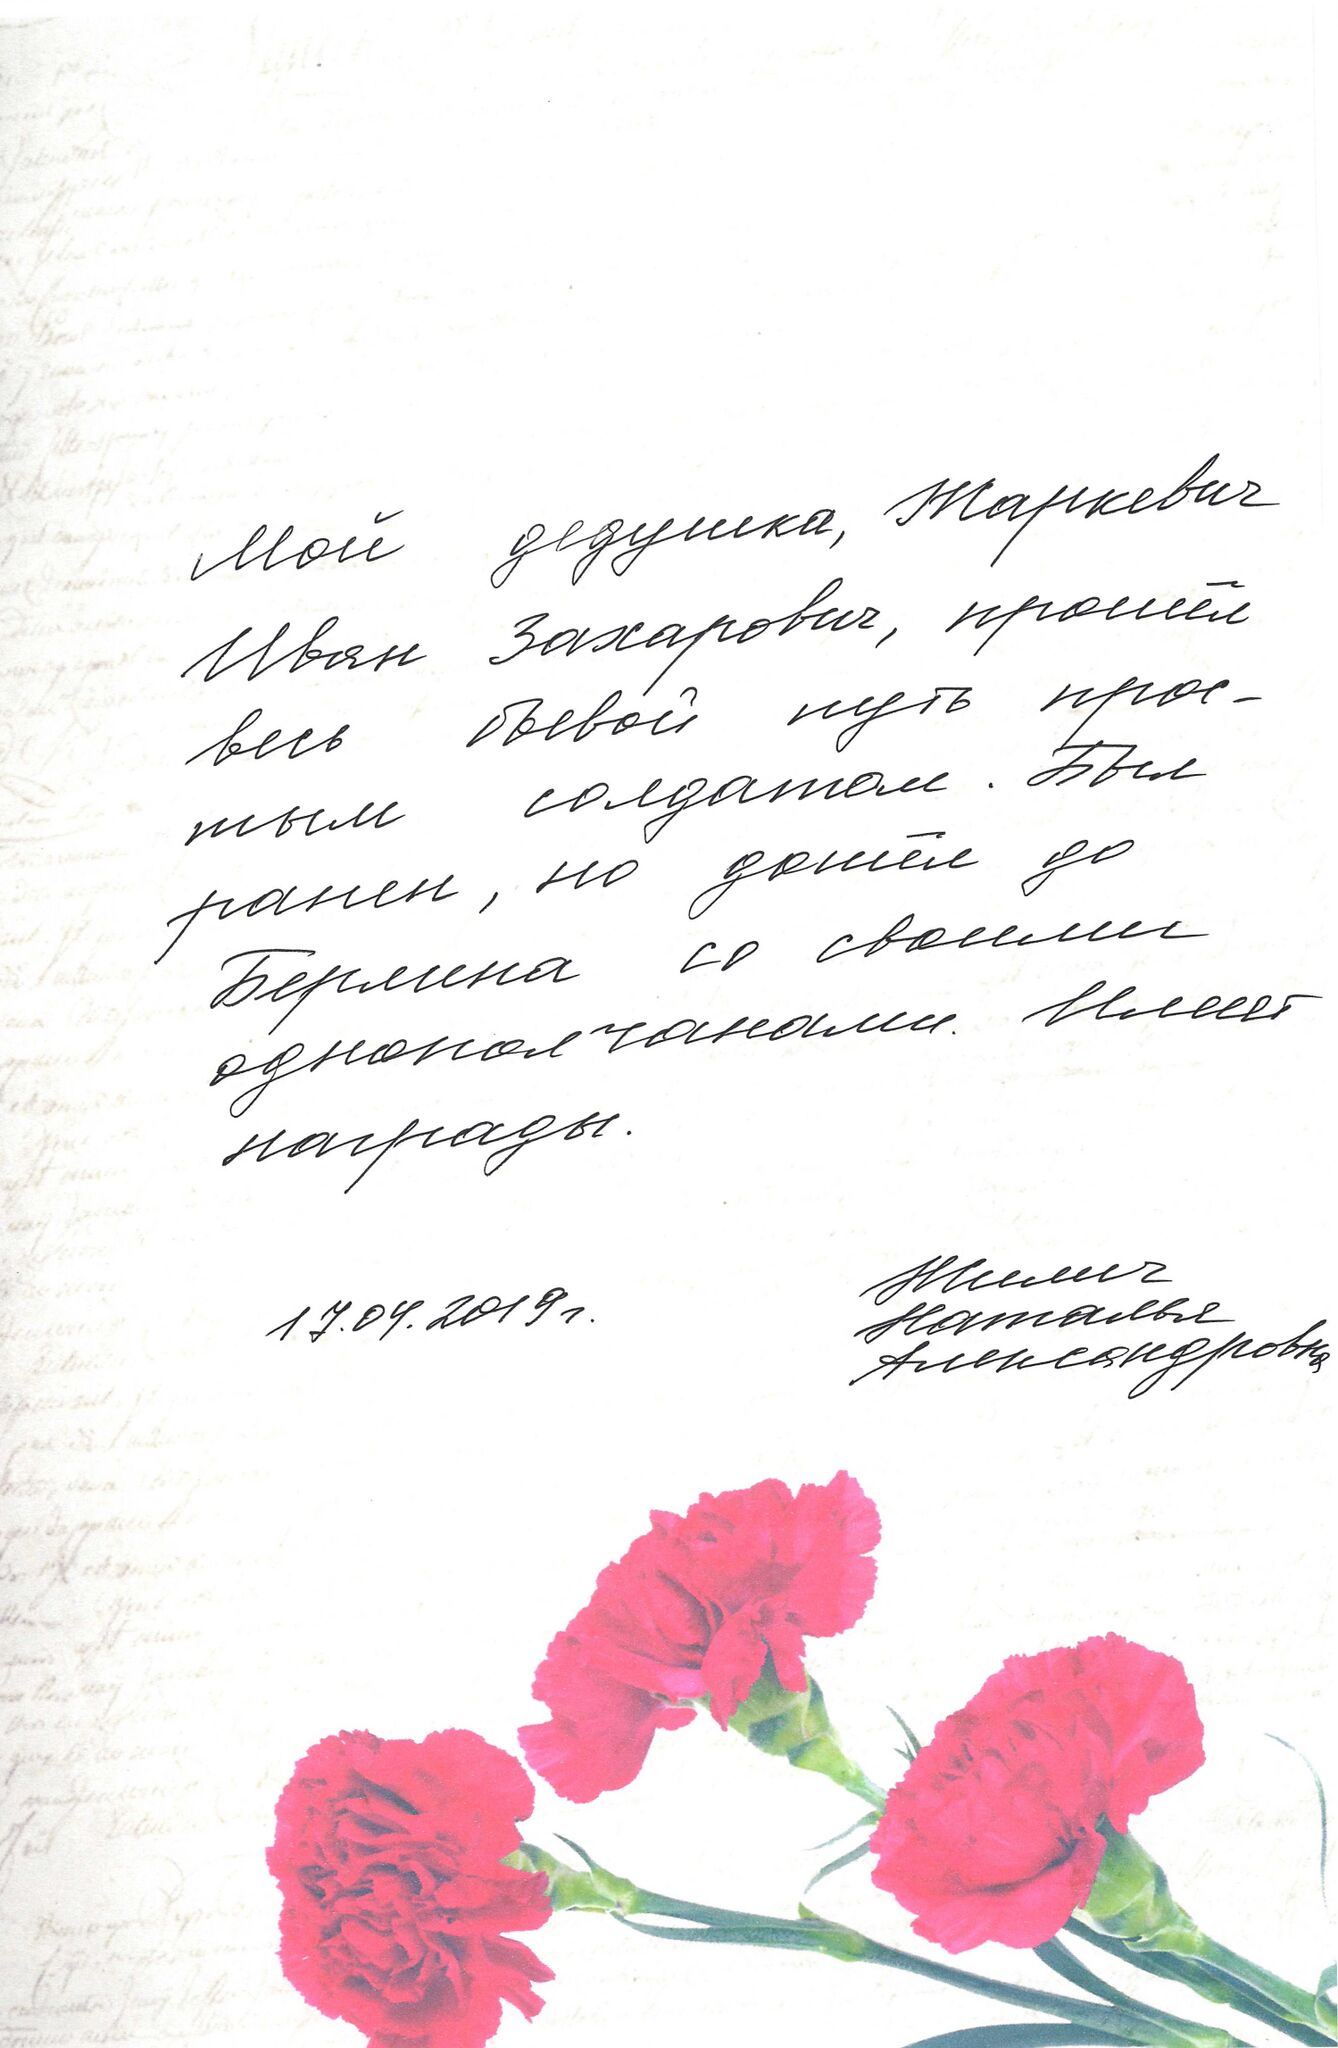 Мой дедушка, Жаркевич
Иван Захарович, прошёл
весь боевой путь прос-
тым солдатом. Был
ранен, но дошёл до
Берлина со своими
однополчанами. Имеет
награды.
17.04.2019г.
Жилич
Наталья
Александровна